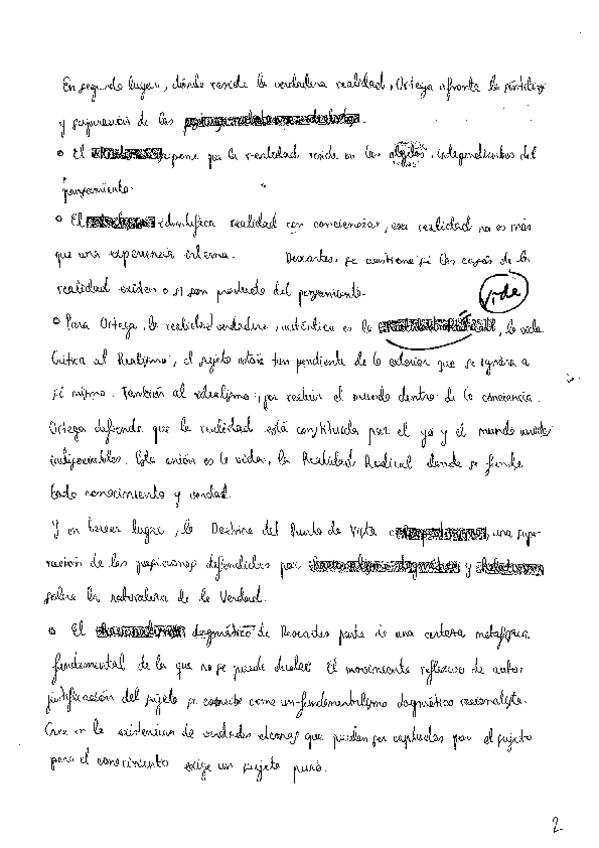 En segundo lugar, dónde reside la verdadera realidad, Ortega afronta la síntesis
y superación de las
• El pone que la realidad reside en los objetos, independientes del
pensamiento.
• El identifica realidad con conciencia, esa realidad no es más
que una experiencia interna. Descartes, se cuestiona si las cosas de la
realidad existen o si son producto del pensamiento.
vida
• Para Ortega, la realidad verdadera, auténtica es la , la vida
Critica al Realismo, el sujeto estaría tan pendiente de lo exterior que se ignora a
sí mismo. También al idealismo, por recluir el mundo dentro de la conciencia.
Ortega defiende que la realidad está constituida por el yo y el mundo
indisociables. Esta unión es la vida, la Realidad Radical donde se funda
todo conocimiento y verdad.
Y en tercer lugar, la Doctrina del Punto de Vista una supe-
ración de las posiciones defendidas por y
sobre la naturaleza de la Verdad.
• El dogmático de Descartes parte de una certeza metafísica
fundamental de la que no se puede dudar. El movimiento reflexivo de auto-
justificación del sujeto se como un fundamentalismo dogmático racionalista.
Cree en la existencia de verdades eternas que puedan ser captadas por el sujeto
pero el conocimiento exige un sujeto puro.
2